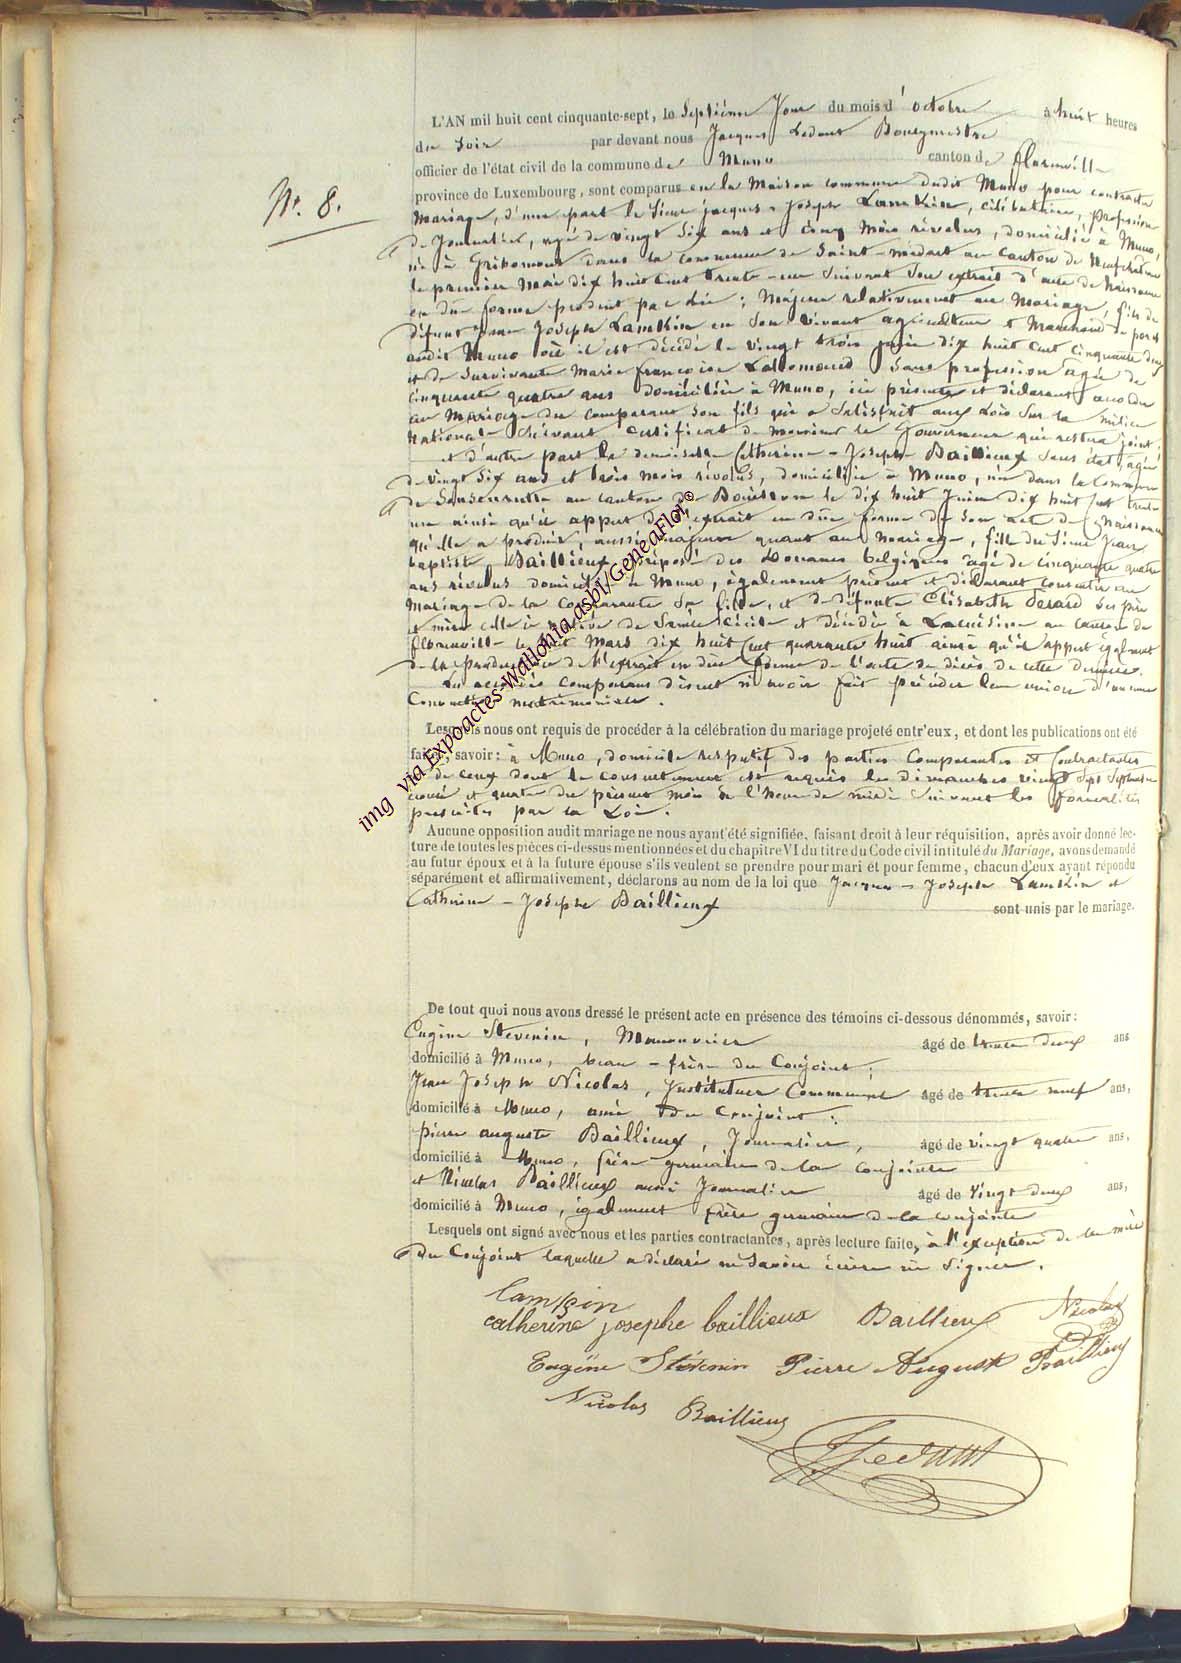 N°. 8.
L'AN mil huit cent cinquante-sept, le Septième Jour du mois d'octobre à huit heures
du Soir par devant nous Jacques Ledant Bourgmestre
officier de l'état civil de la commune de Muno canton de florenville
province de Luxembourg, sont comparus en la Maison commune dudit Muno pour contracter
Mariage, d'une part le Sieur jacques-Joseph Lamkin, célibataire, profession
de Journalier, agé de vingt Six ans et cinq Mois révolus, domicilié à Muno,
né à Gribomont dans la commune de Saint-médart au Canton de Neufchâteau
le premier Mai dix huit Cent trente-un Suivant Son extrait d'acte de Naissance
en due forme produit par lui ; Majeur relativement au Mariage, fils de
défunt Jean Joseph Lamkin en Son vivant agriculteur et Marchand de porcs
audit Muno où il est décédé le vingt trois juin dix huit Cent cinquante deux
et de Survivante Marie françoise Sans profession agée de
Cinquante quatre ans domiciliée à Muno, ici présente et déclarant accéder
au Mariage du comparant Son fils qui a Satisfait aux Lois Sur la milice
Nationale Suivant Certificat de monsieur le Gouverneur qui restera joint.
et d'autre part la demoiselle Catherine-Joseph Baillieux Sans état agée
de vingt Six ans et trois mois révolus, domiciliée à Muno, née dans la Commune
de Sensenruth au canton de Bouillon le dix huit Juin dix huit Cent trente
une ainsi qu'il appert de l'extrait en due forme de Son acte de Naissance
qu'elle a produit, aussi majeure quant au mariage, fille du Sieur Jean
baptiste Baillieux Préposé des Douanes belgiques agé de cinquante quatre
ans révolus domicilié à Muno, également présent et déclarant consentir au
Mariage de la Comparante Sa fille, et de défunte Elisabeth Gerard Ses père
et mère celle-ci native de Sainte Cécile et décédée à Lacuisine au Canton de
florenville le huit Mars dix huit Cent quarante huit ainsi qu'il appert également
de la production de l'extrait en due forme de l'acte de décès de cette dernière.
Les comparans disent n'avoir fait précéder leur union d'aucune
Convention matrimoniale.
Lesquels nous ont requis de procéder à la célébration du mariage projeté entr'eux, et dont les publications ont été
faites, savoir : à Muno, domicile respectif des parties Comparantes et Contractantes
de ceux dont le consentement est requis les dimanches vingt Sept Septembre
et quatre du présent mois de l'heure de midi Suivant les formalités
prescrites par la Loi.
Aucune opposition audit mariage ne nous ayant été signifiée, faisant droit à leur réquisition, après avoir donné lec-
ture de toutes les pièces ci-dessus mentionnées et du chapitre VI du titre du Code civil intitulé du Mariage, avons demandé
au futur époux et à la future épouse s'ils veulent se prendre pour mari et pour femme, chacun d'eux ayant répondu
séparément et affirmativement, déclarons au nom de la loi que Jacques-Joseph Lamkin et
Catherine-Josephe Baillieux sont unis par le mariage.
De tout quoi nous avons dressé le présent acte en présence des témoins ci-dessous dénommés, savoir :
Eugène Stevenin, Manouvrier âgé de trente deux ans
domicilié à Muno, beau-frère du Conjoint ;
Jean Joseph Nicolas, Instituteur Communal âgé de trente neuf ans,
domicilié à Muno, ami du Conjoint ;
pierre auguste Baillieux, Journalier, âgé de vingt quatre ans,
domicilié à Muno, frère germain de la conjointe
et Nicolas Baillieux aussi Journalier âgé de vingt deux ans,
domicilié à Muno, également frère germain de la conjointe
Lesquels ont signé avec nous et les parties contractantes, après lecture faite, à l'exception de la mère
du Conjoint laquelle a déclaré ne Savoir écrire ni Signer.
Lampin
catherine josephe baillieux Baillieux Nicolas
Eugène Stévenin Pierre Auguste Baillieux
Nicolas Baillieux
JLedant
img via Expoactes-Wallonia.asbl/GeneaFlor©